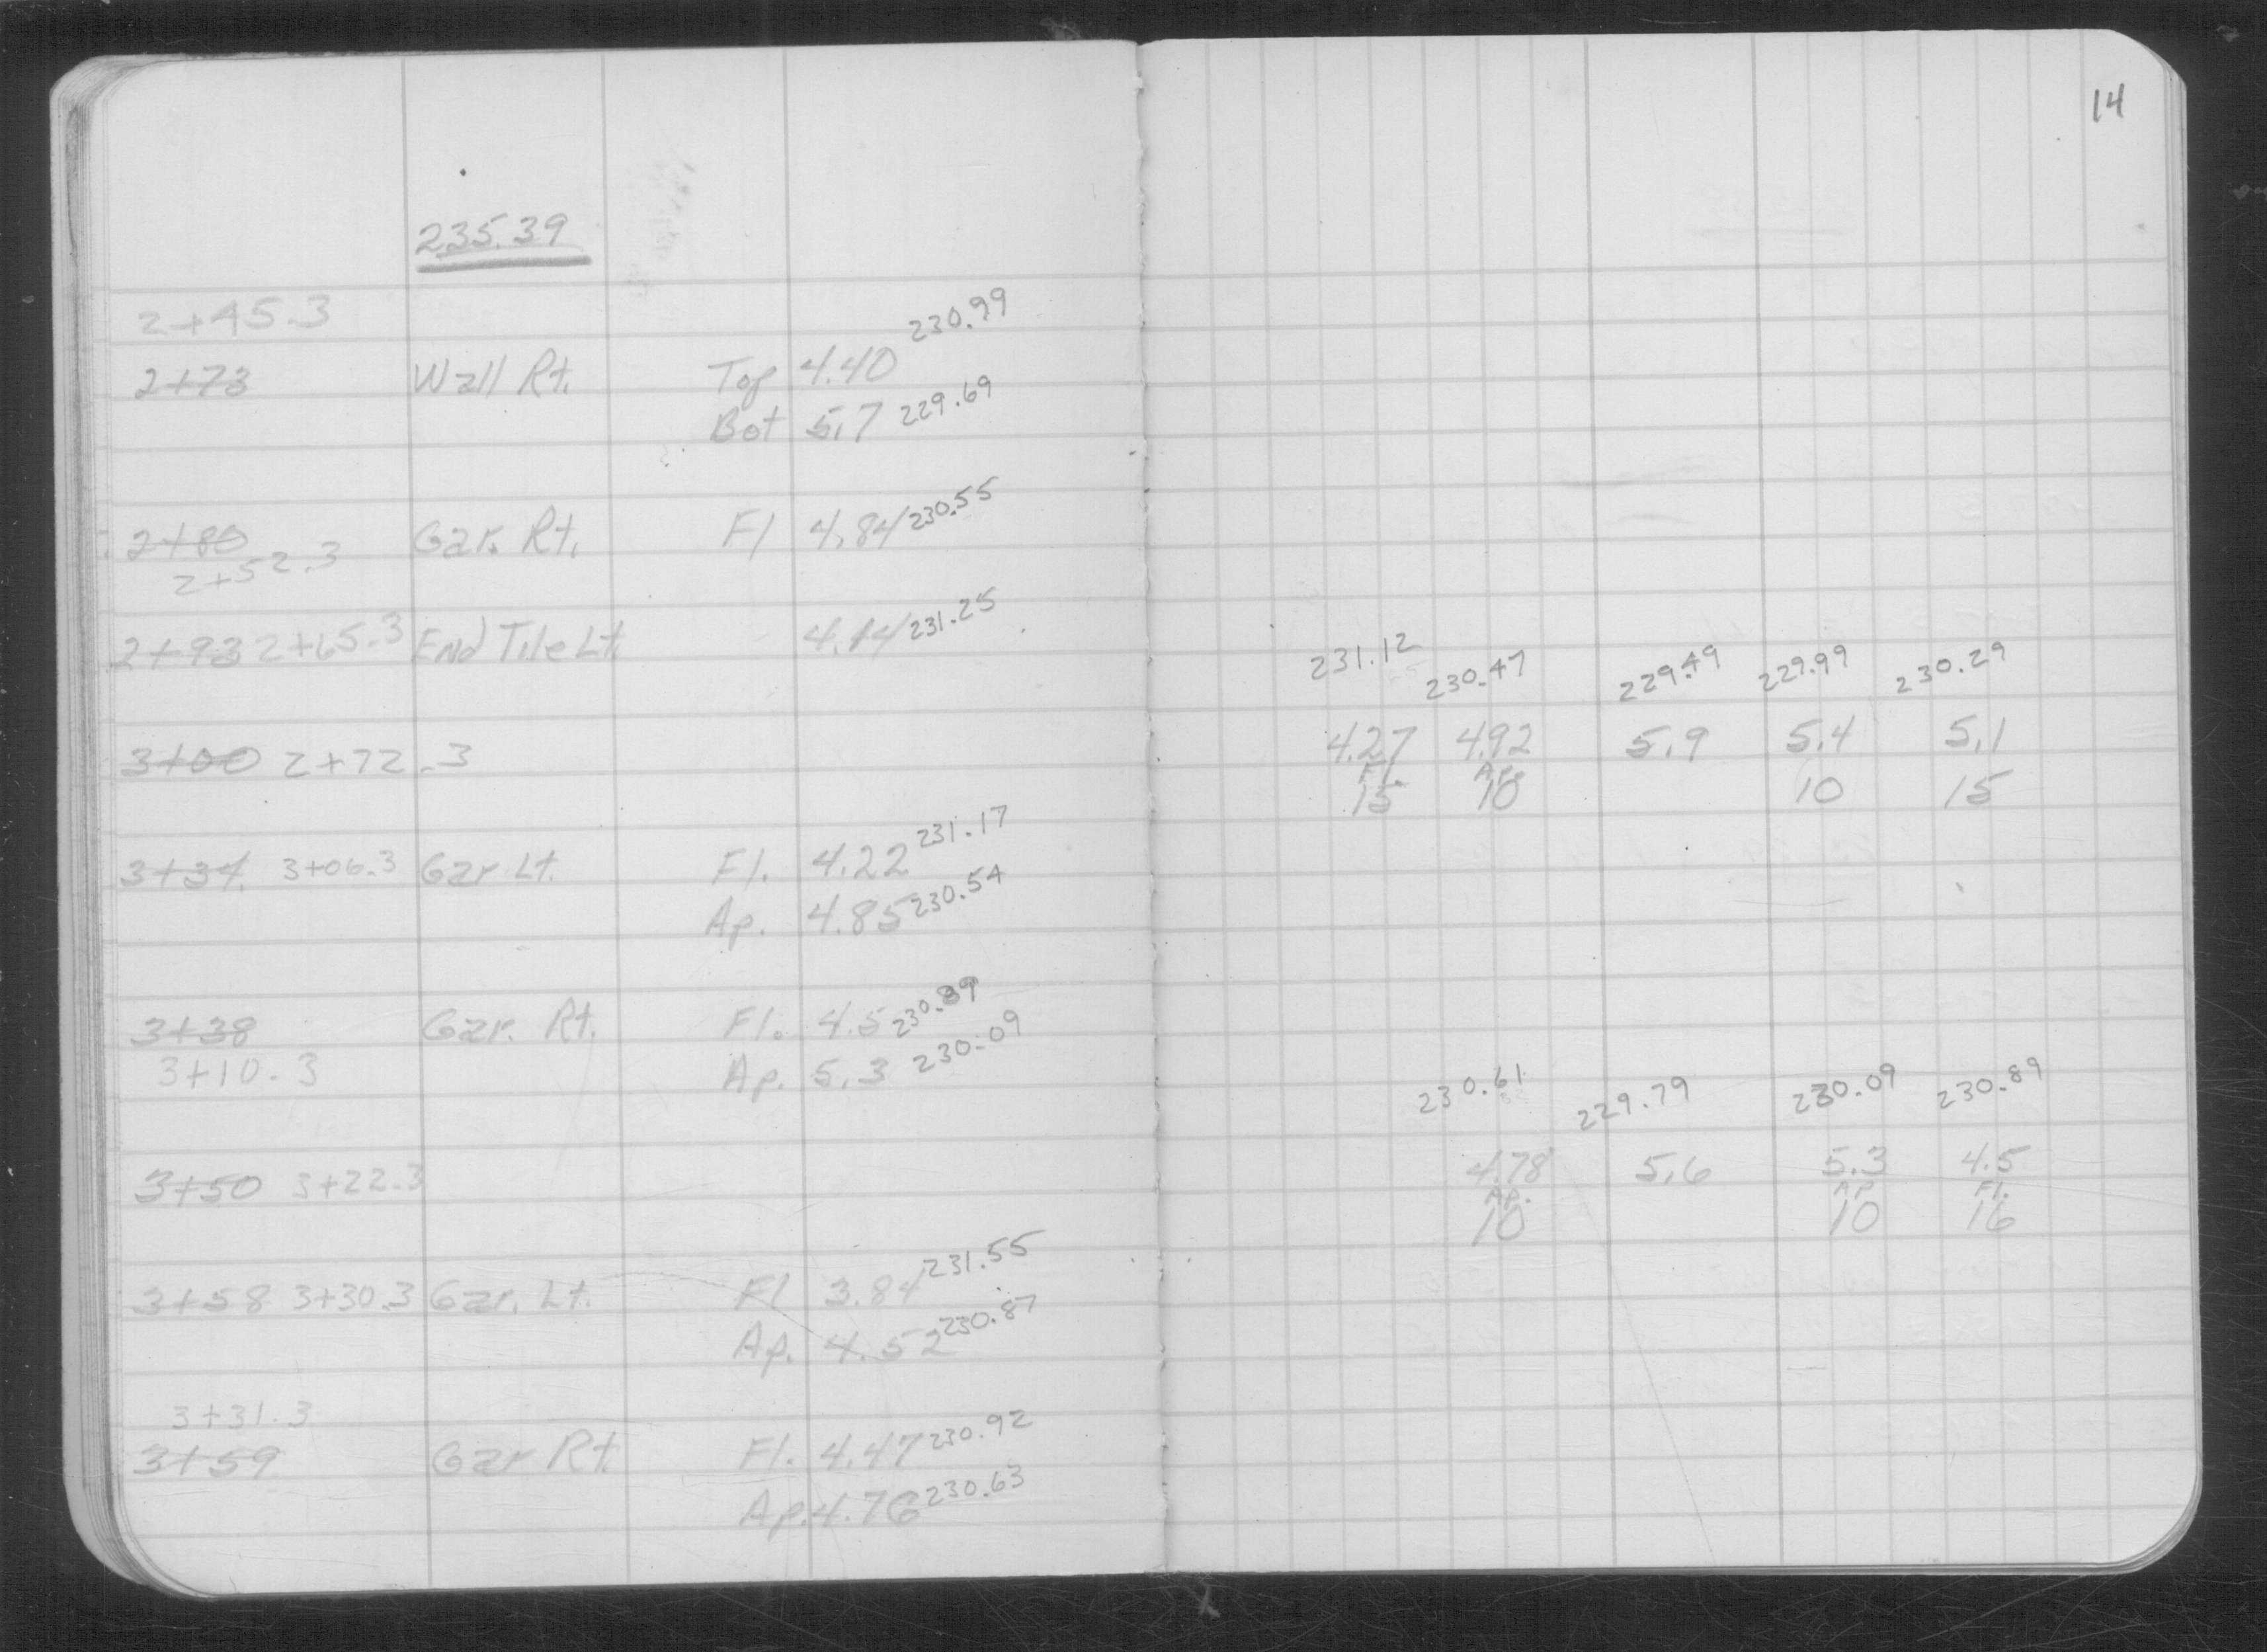 14
235.39
2+45.3
230.99
2+73 Wall Rt. Top 4.40
Bot 5.7 229.69
2+80 Gar. Rt. Fl 4.84 230.55
2+52.3
2+93 2+65.3 End Tile Lt. 4.14 231.25
231.12 230.47 229.49 229.99 230.29
3+00 2+72.3 4.27 4.92 5.9 5.4 5.1
Fl. Ap.
15 10 10 15
3+34 3+06.3 Gar Lt. Fl. 4.22 231.17
Ap. 4.85 230.54
3+38 Gar. Rt. Fl. 4.5 230.89
3+10.3 Ap. 5.3 230.09
230.61 229.79 230.09 230.89
3+50 3+22.3 4.78 5.6 5.3 4.5
Ap. Ap Fl.
10 10 16
3+58 3+30.3 Gar. Lt. Fl 3.84 231.55
Ap. 4.52 230.87
3+31.3
3+59 Gar Rt. Fl. 4.47 230.92
Ap. 4.76 230.63